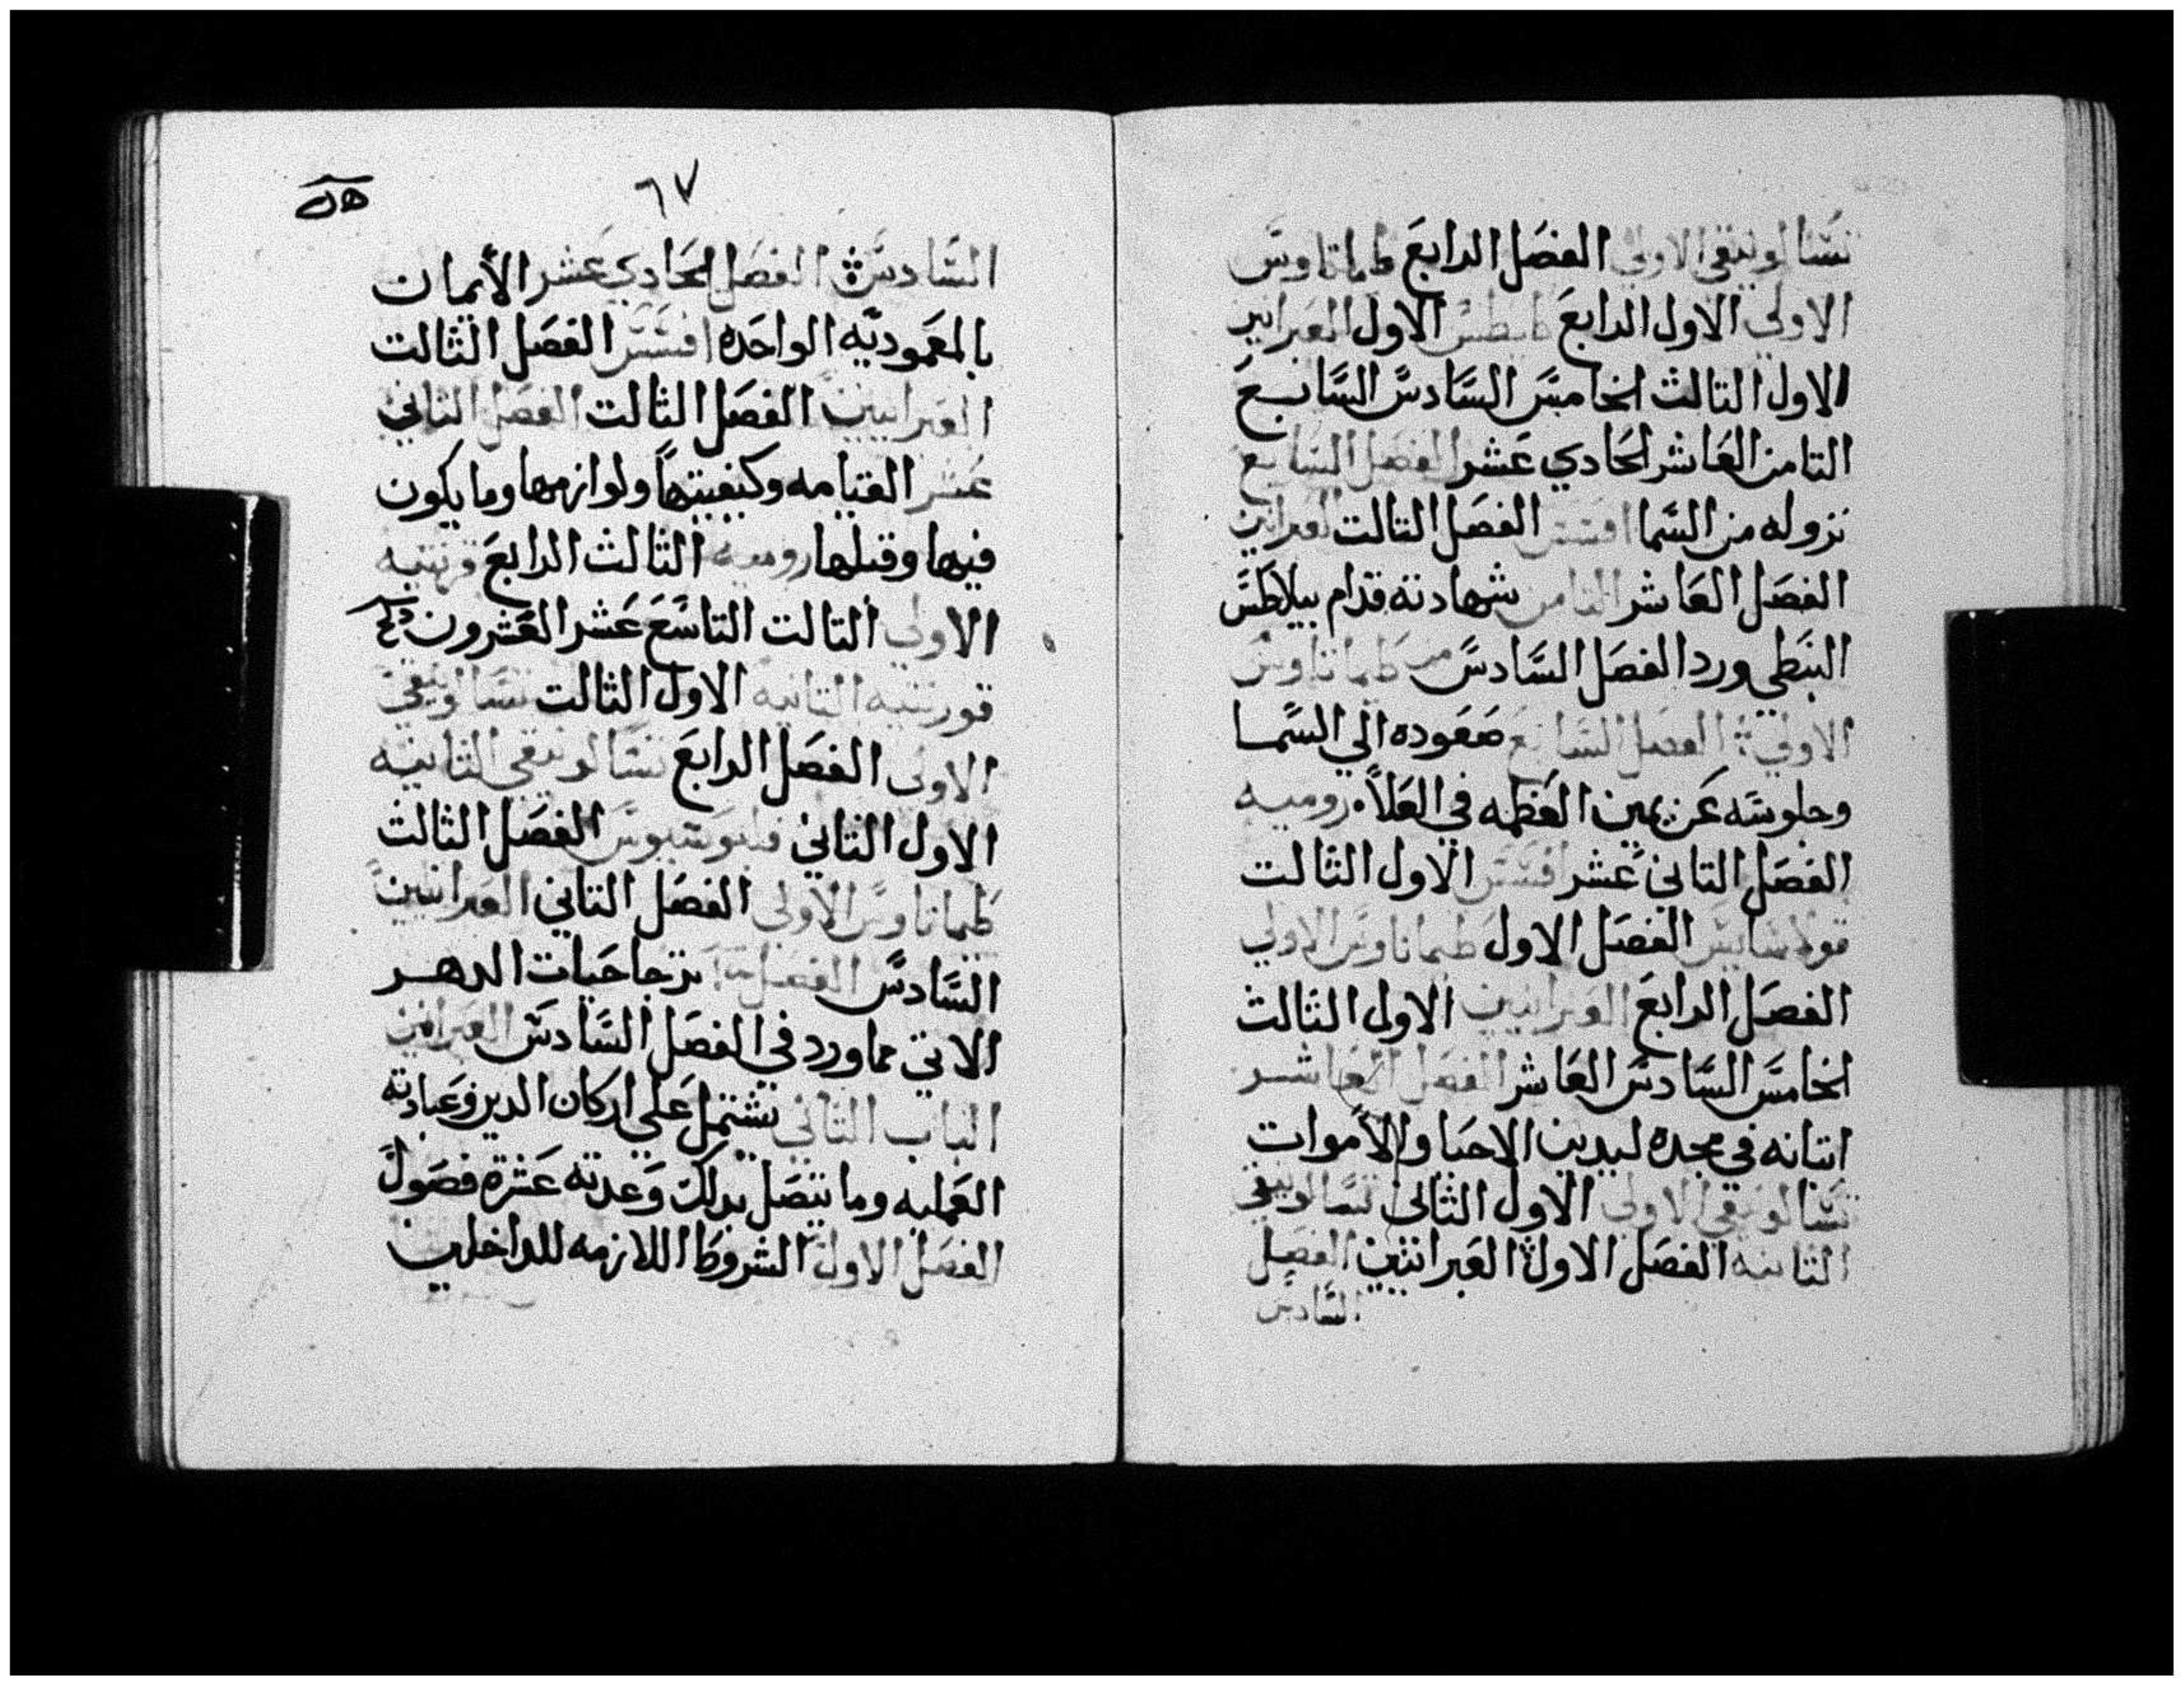 تسالونيقي الاولي الفصل الرابع طماتاوس
الاولي الاول الرابع طيطس الاول العبرانيين
الاول التالث الخامس السادس السابع
التامن العاشر الحادي عشر الفصل السابع
نزوله من السما افسس الفصل التالت العبرانيين
الفصل العاشر التامن شهادته قدام بيلاطس
البنطي ورد الفصل السادس من طيماتاوس
الاولي الفصل السابع صعوده الي السما
وجلوسه عن يمين العظمه في العلا روميه
الفصل التاني عشر افسس الاول التالت
قولاسايس الفصل الاول طيماتاوس الاولي
الفصل الرابع العبرانيين الاول التالث
الخامس السادس العاشر الفصل العاشر
اتيانه في مجده ليدين الاحيا والاموات
تسالونيقي الاولي الاول التاني تسالونيقي
التانيه الفصل الاول العبرانيين الفصل
السادس
٦٧
السادس الفصل الحادي عشر الأيمان
بالمعموديه الواحده افسس الفصل التالت
العبرانيين الفصل التالت الفصل التاني
عشر القيامه وكيفيتها ولوازمها وما يكون
فيها وقبلها روميه التالث الرابع قرنتيه
الاولي التالت التاسع عشر العشرون
قورنتيه التانيه الاول التالت تسالونيقي
الاولي الفصل الرابع تسالونيقي التانيه
الاول التاني فيلبوسيوس الفصل التالت
طيماتاوس الاولي الفصل التاني العبرانيين
السادس الفصل نترجا حيات الدهر
الاتي مما ورد في الفصل السادس العبرانيين
الباب التاني يشتمل علي اركان الدين وعباداته
العمليه وما يتصل بدلك وعدته عشرة فصول
الفصل الاول الشروط اللازمه للداخلين